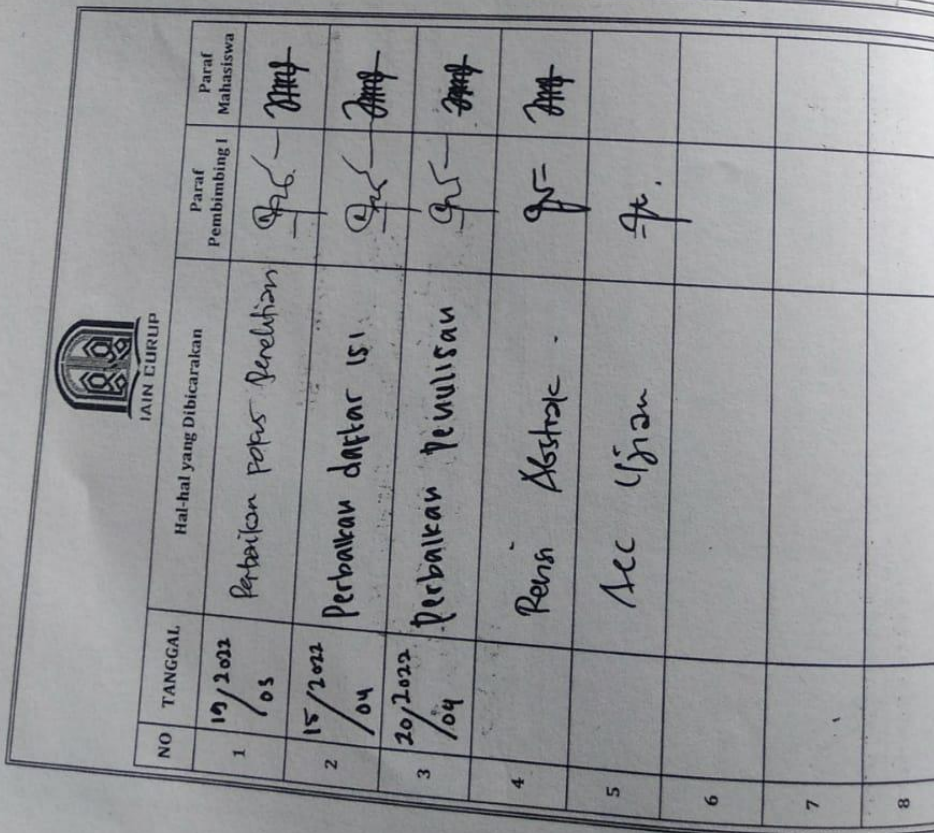 IAIN CURUP
NO TANGGAL Hal-hal yang Dibicarakan Paraf Pembimbing I Paraf Mahasiswa
1 19/2022 /03 Perbaikan Fokus Penelitian
2 15/2022 /04 Perbaikan daftar isi
3 20/2022 /04 Perbaikan Penulisan
4 Revisi Abstrak .
5 Acc Ujian
6
7
8